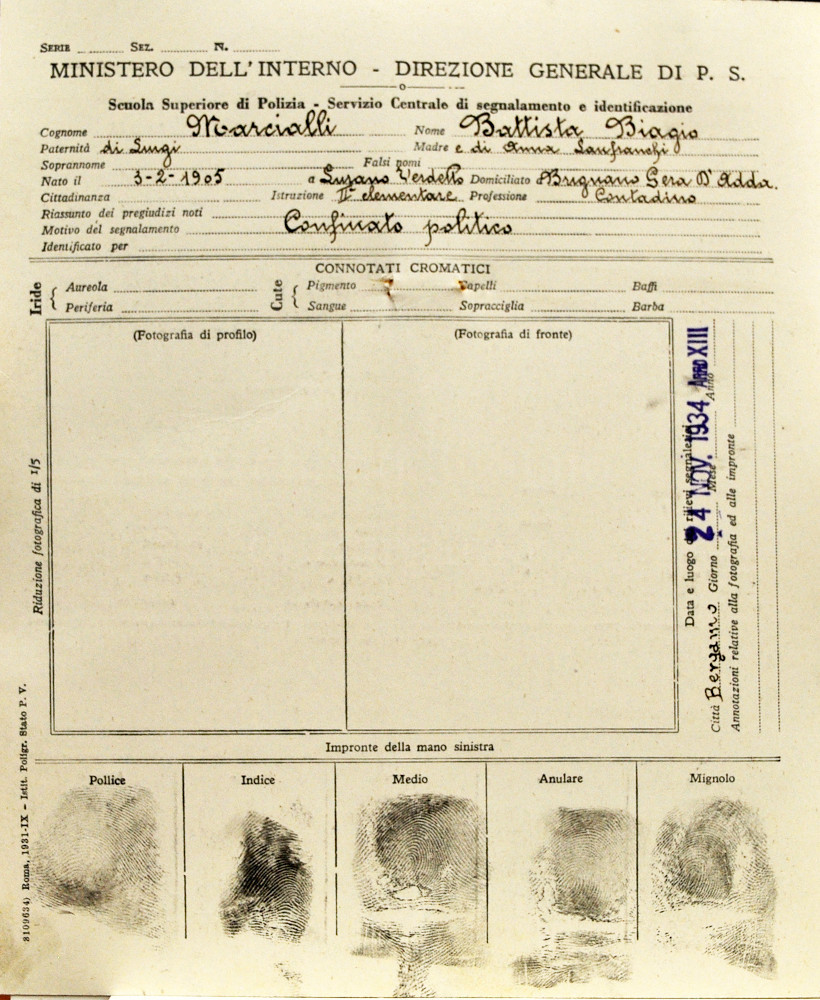 SERIE SEZ. N.
MINISTERO DELL'INTERNO - DIREZIONE GENERALE DI P. S.
Scuola Superiore di Polizia - Servizio Centrale di segnalamento e identificazione
Cognome Marcialli Nome Battista Biagio
Paternità di Luigi Madre e di Anna Lanfranchi
Soprannome Falsi nomi
Nato il 3-2-1905 a Lurano Verdello Domiciliato Brignano Gera D'Adda.
Cittadinanza Istruzione II elementare Professione Contadino
Riassunto dei pregiudizi noti
Motivo del segnalamento Confinato politico
Identificato per
CONNOTATI CROMATICI
Iride Aureola Cute Pigmento Capelli Baffi
Periferia Sangue Sopracciglia Barba
(Fotografia di profilo) (Fotografia di fronte)
Riduzione fotografica di 1/5
Data e luogo dei rilievi segnaletici
Città Bergamo Giorno Mese Anno
24 NOV. 1934 ANNO XIII
Annotazioni relative alla fotografia ed alle impronte
Impronte della mano sinistra
Pollice Indice Medio Anulare Mignolo
8109634) Roma, 1931-IX - Istit. Poligr. Stato P. V.